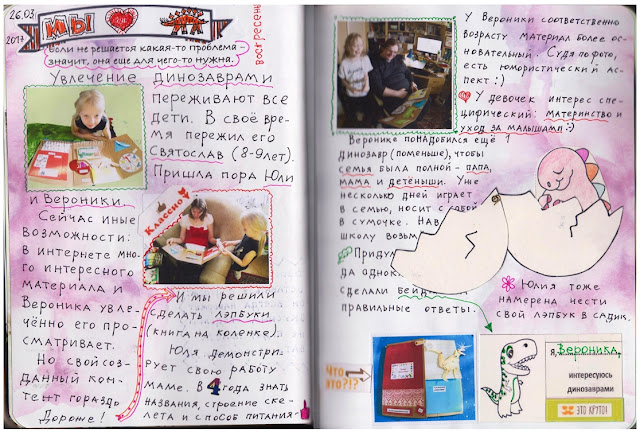 26.03
2017
МЫ
воскресенье
Если не решается какая-то проблема –
значит, она еще для чего-то нужна.
Увлечение динозаврами
переживают все
дети. В своё вре-
мя пережил его
Святослав (8-9лет).
Пришла пора Юли
и Вероники.
Сейчас иные
возможности:
в интернете мно-
го интересного
материала и
Вероника увле-
чённо его про-
сматривает.
Но свой соз-
данный кон-
тент гораздо
дороже!
Классно
И мы решили
сделать лэпбуки
(книга на коленке).
Юля демонстри-
рует свою работу
маме. В 4 года знать
названия, строение ске-
лета и способ питания-
У Вероники соответственно
возрасту материал более ос-
новательный. Судя по фото,
есть юмористический ас-
пект :)
У девочек интерес спе-
цифический: материнство и
уход за малышами :)
Веронике понадобился ещё 1
динозавр (поменьше), чтобы
семья была полной – папа,
мама и детёныши. Уже
несколько дней играет
в семью, носит с собой
в сумочке.
школу
Приду
да однок
сделали бейд
правильные ответы.
Юлия тоже
намерена нести
свой лэпбук в садик.
Что
это?!?
Я, Вероника,
интересуюсь
динозаврами
ЭТО КРУТО!